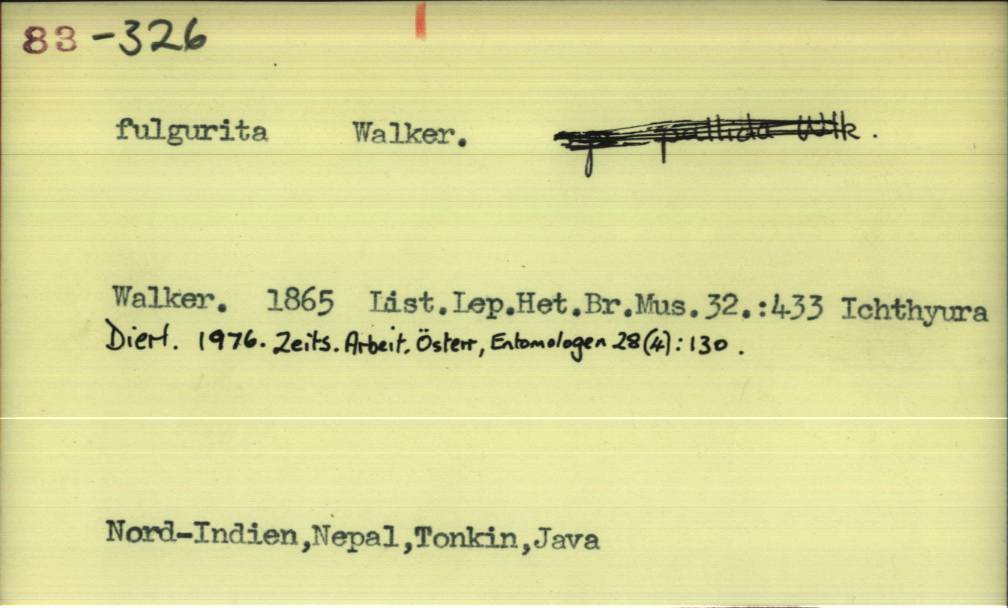 83-326
fulgurita Walker. pallida Wlk.
Walker. 1865 List.Lep.Het.Br.Mus.32.:433 Ichthyura
Dierl. 1976. Zeits. Arbeit. Österr, Entomologen 28(4):130.
Nord-Indien,Nepal,Tonkin,Java